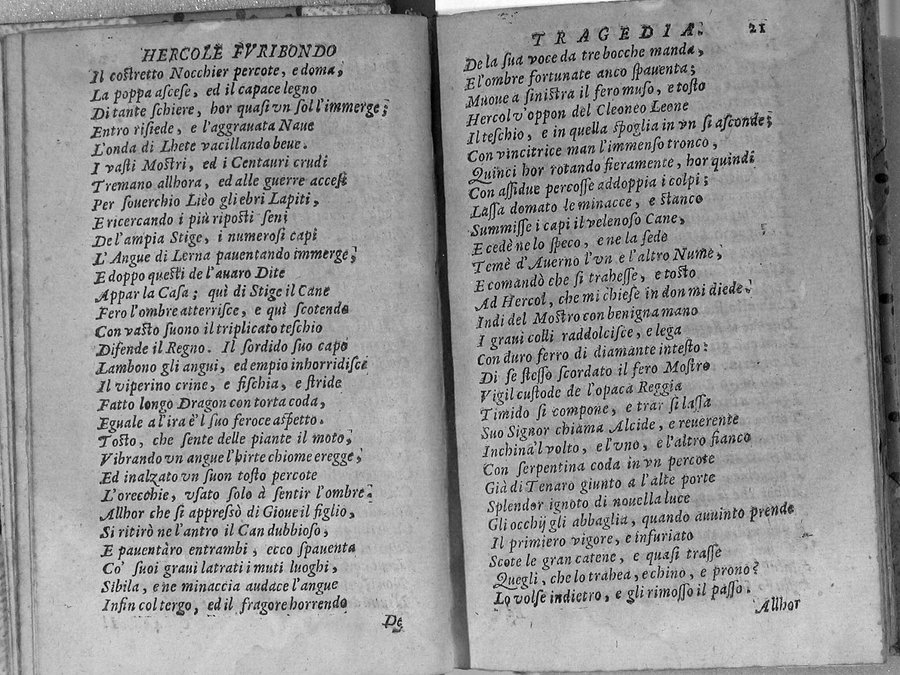 HERCOLE FVRIBONDO
Il costretto Nocchier percote, e doma,
La poppa ascese, ed il capace legno
Di tante schiere, hor quasi vn sol l'immerge;
Entro risiede, e l'aggrauata Naue
L'onda di Lhete vacillando beue.
I vasti Mostri, ed i Centauri crudi
Tremano allhora, ed alle guerre accesi
Per souerchio Lièo gli ebri Lapiti,
E ricercando i più riposti seni
De l'ampia Stige, i numerosi capi
L'Angue di Lerna pauentando immerge;
E doppo questi de l'auaro Dite
Appar la Casa; quì di Stige il Cane
Fero l'ombre atterrisce, e quì scotendo
Con vasto suono il triplicato teschio
Difende il Regno. Il sordido suo capo
Lambono gli angui, ed empio inhorridisce
Il viperino crine, e fischia, e stride
Fatto longo Dragon con torta coda,
Eguale a l'ira è'l suo feroce aspetto.
Tosto, che sente delle piante il moto,
Vibrando vn angue l'hirte chiome eregge,
Ed inalzato vn suon tosto percote
L'orecchie, vsato solo à sentir l'ombre.
Allhor che si appressò di Gioue il figlio,
Si ritirò ne l'antro il Can dubbioso,
E pauentàro entrambi, ecco spauenta
Co' suoi graui latrati i muti luoghi,
Sibila, e ne minaccia audace l'angue
Infin col tergo, ed il fragore horrendo
De
TRAGEDIA. 21
De la sua voce da tre bocche manda,
E l'ombre fortunate anco spauenta;
Muoue a sinistra il fero muso, e tosto
Hercol v'oppon del Cleoneo Leone
Il teschio, e in quella spoglia in vn si asconde;
Con vincitrice man l'immenso tronco,
Quinci hor rotando fieramente, hor quindi
Con assidue percosse addoppia i colpi;
Lassa domato le minacce, e stanco
Summisse i capi il velenoso Cane,
E cedè ne lo speco, e ne la sede
Temè d'Auerno l'vn e l'altro Nume,
E comandò che si trahesse, e tosto
Ad Hercol, che mi chiese in don mi diede.
Indi del Mostro con benigna mano
I graui colli raddolcisce, e lega
Con duro ferro di diamante intesto:
Di se stesso scordato il fero Mostro
Vigil custode de l'opaca Reggia
Timido si compone, e trar si lassa
Suo Signor chiama Alcide, e reuerente
Inchina'l volto, e l'vno, e l'altro fianco
Con serpentina coda in vn percote
Già di Tenaro giunto a l'alte porte
Splendor ignoto di nouella luce
Gli occhij gli abbaglia, quando auuinto prende
Il primiero vigore, e infuriato
Scote le gran catene, e quasi trasse
Quegli, che lo trahea, e chino, e prono
Lo volse indietro, e gli rimosso il passo.
Allhor